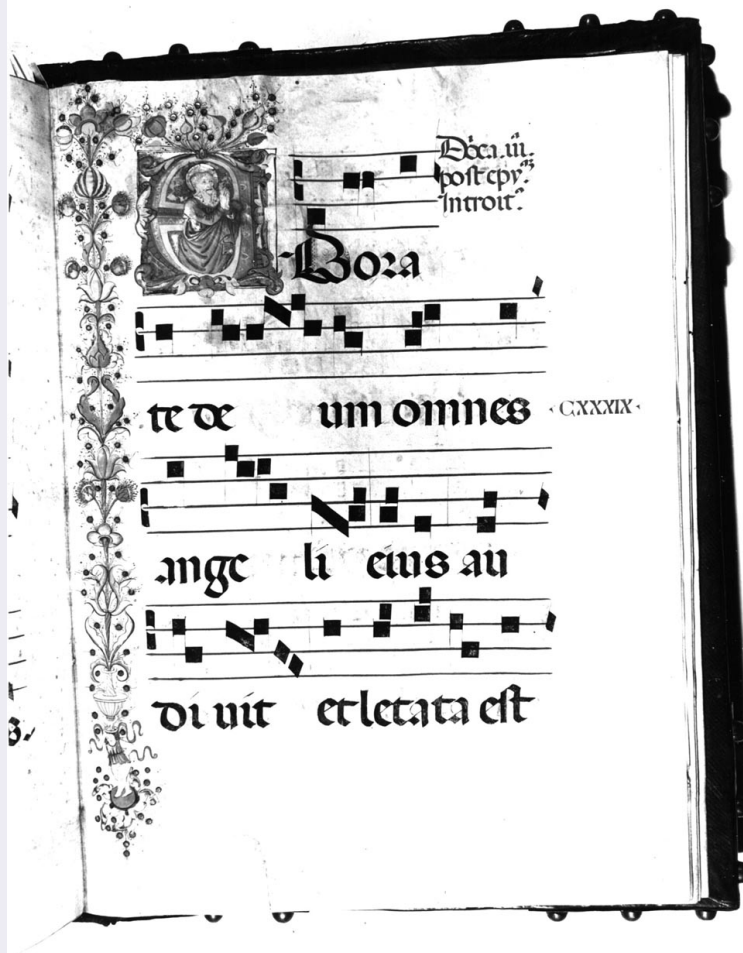 Do͞ca. iii.
post epy.
Introit.
Dora
te de um omnes
CXXXIX
ange li eius au
di uit et letata est
s.